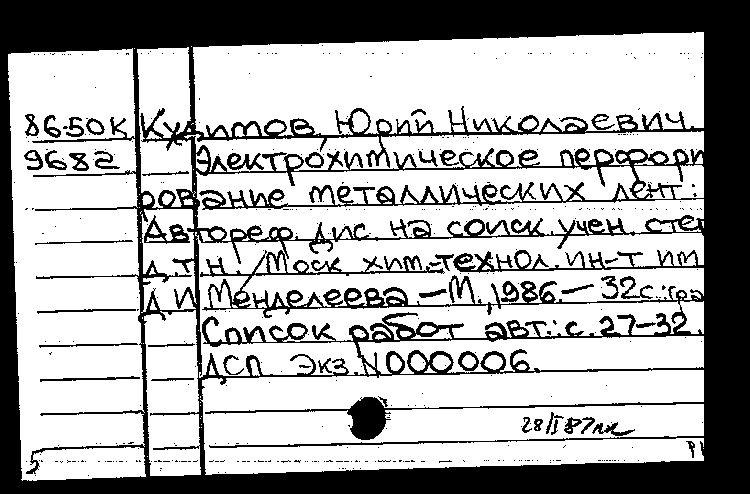 86-50К Кудимов, Юрий Николаевич.
9682 Электрохимическое перфори
рование металлических лент:
Автореф. дис. на соиск. учен. степ
д.т.н. / Моск. хим.-технол. ин-т им
Д.И Менделеева. — М., 1986. — 32с.: гра
Список работ авт.: с. 27-32.
ДСП Экз. N000006.
28/I 87
5